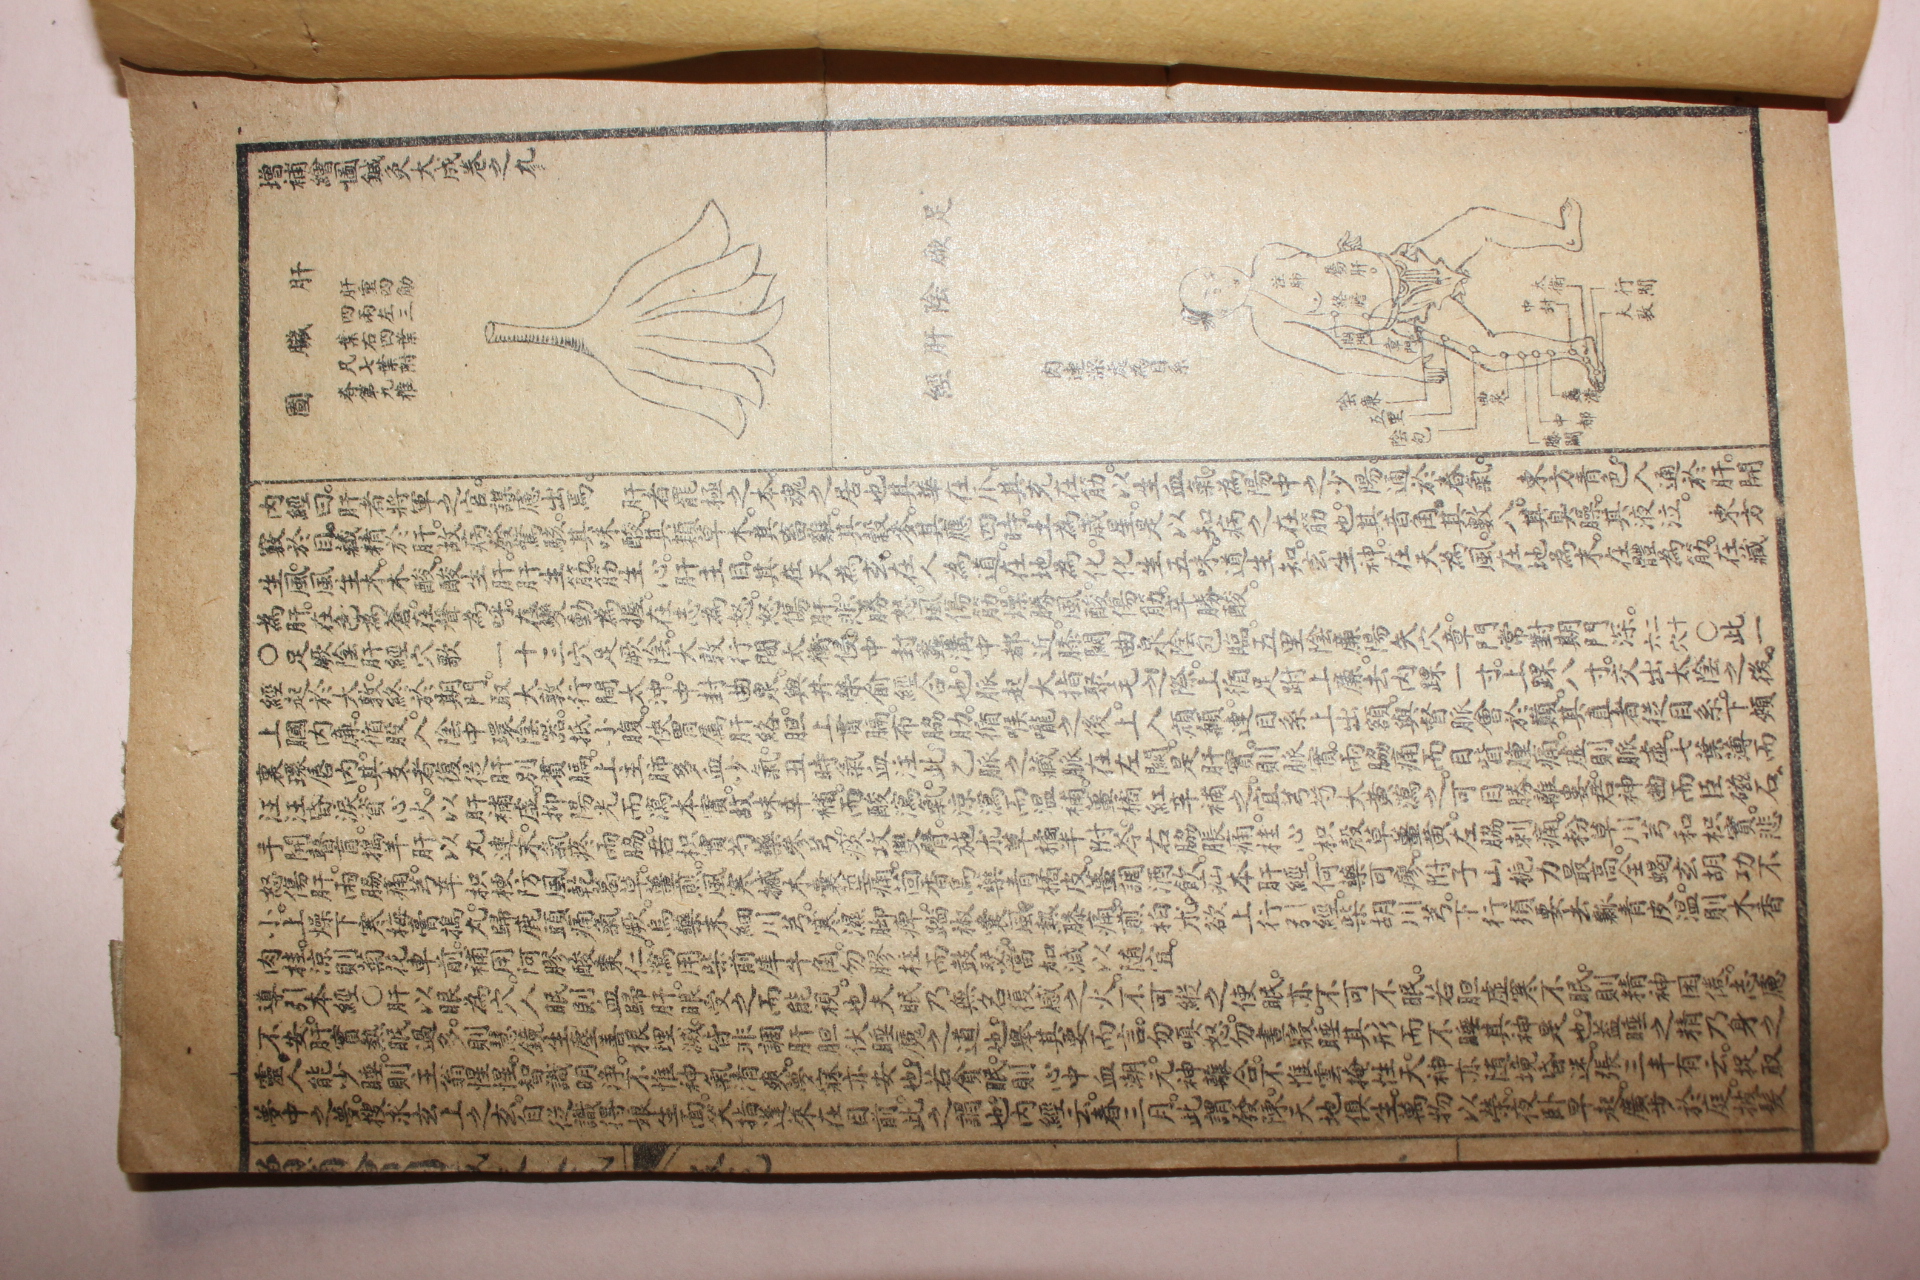 增補繪圖鍼灸大成卷之九
肝臟圖
肝重四觔
四兩左三
葉右四葉
凡七葉附
脊第九椎
足厥陰肝經
內連深處為目系
注肺
屬肝
絡膽
期門
章門
陰廉
五里
陰包
曲泉
膝關
中都
蠡溝
中封
太衝
行間
大敦
內經曰。肝者將軍之官。謀慮出焉。 肝者罷極之本。魂之居也。其華在爪。其充在筋。以生血氣。為陽中之少陽。通於春氣。 東方青色。入通於肝。開
竅於目。藏精於肝。故病發驚駭。其味酸。其類草木。其畜雞。其穀麥。其應四時。上為歲星。是以知病之在筋也。其音角。其數八。其臭臊。其液泣。 東方
生風。風生木。木酸。酸生肝。肝生筋。筋生心。肝主目。其在天為玄。在人為道。在地為化。化生五味。道生知。玄生神。在天為風。在地為木。在體為筋。在藏
為肝。在色為蒼。在聲為呼。在變動為握。在志為怒。怒傷肝。悲勝怒。風傷筋。燥勝風。酸傷筋。辛勝酸。
○足厥陰肝經穴歌 一十三穴足厥陰。大敦行間太衝侵。中封蠡溝中都近。膝關曲泉陰包臨。五里陰廉陽矢穴。章門常對期門深。二十六穴○此一
經起於大敦。終於期門。取大敦行間太沖。中封曲泉。與井滎俞經合也。脈起大指聚毛之際。上循足跗上廉。去內踝一寸。上踝八寸。交出太陰之後。
上膕內廉。循股。入陰中。環陰器。抵小腹。俠胃屬肝絡胆。上貫膈。布脇肋。循喉嚨之後。上入頏顙。連目系。上出額。與督脈會於巔。其直者從目系。下頰
裏。環唇內。其支者復從肝別貫膈。上主肺。多血少氣。丑時氣血注此。乙脈之藏。脈在左關。是肝實。則脈實。兩脇痛而目眥腫痛。虛則脈虛。七葉薄而
汪汪昏淚。資心火。以肝補虛。抑陽光而瀉本實。故味辛補。而酸瀉。氣涼瀉而温補。薑橘紅辛補之。宜芎芍大黃瀉之。可目勝離婁。君神曲而臣磁石。
手開瞽盲。搗羊肝以丸連末。氣疼兩脇。君枳實芍藥參芎。痰攻雙臂。施朮草橘半附苓。右脇脹痛。桂心枳殼草薑黃。左脇刺痛。粉草川芎和枳實。悲
怒傷肝。兩腸痛。芎辛枳梗防風乾葛草薑煎。風寒撼木囊莖痛。茴香烏藥青橘皮薑調酒飲。疝本肝經。何藥可廖。附子山梔力最高。全蝎玄胡功不
小。上燥下寒。梅膏搗丸歸鹿。頭痛氣厥。烏藥末細川芎。寒濕脚痺。踏椒囊。風熱膝痛。煎柏朮。欲上行引經。柴胡川芎。下行須要去瓤青皮。温則木香
肉桂。涼則菊花車前。補用阿膠酸棗仁。瀉用柴前犀牛角。勿膠柱而鼓瑟。當加減以隨宜。
導引本經○肝以眼為穴。人眠則血歸肝。眼受之而能視也。夫眠乃無名復感之火。不可縱之使眠。亦不可不眠。若胆虛寒不眠。則精神困倦。志慮
不安。肝實熱眠過多。則慧鏡生塵。善根埋滅。皆非調肝胆伏睡魔之道也。舉其要而言。勿嗔怒。勿晝寢。睡其形而不睡其神是也。蓋睡之精乃身之
靈。人能少睡。則主翁惺惺。智識明净。不惟神氣清爽。夢寐亦安也。若貪眠。則心中血潮。元神離合。不惟雲掩性天。神亦隨境昏迷。張三丰有云。捉取
夢中之夢。搜求玄上之玄。自從識得娘生面。笑指逢萊在目前。此之謂也。內經云。春三月。此謂發陳。天地俱生。萬物以榮。夜卧早起。廣步於庭。披髮